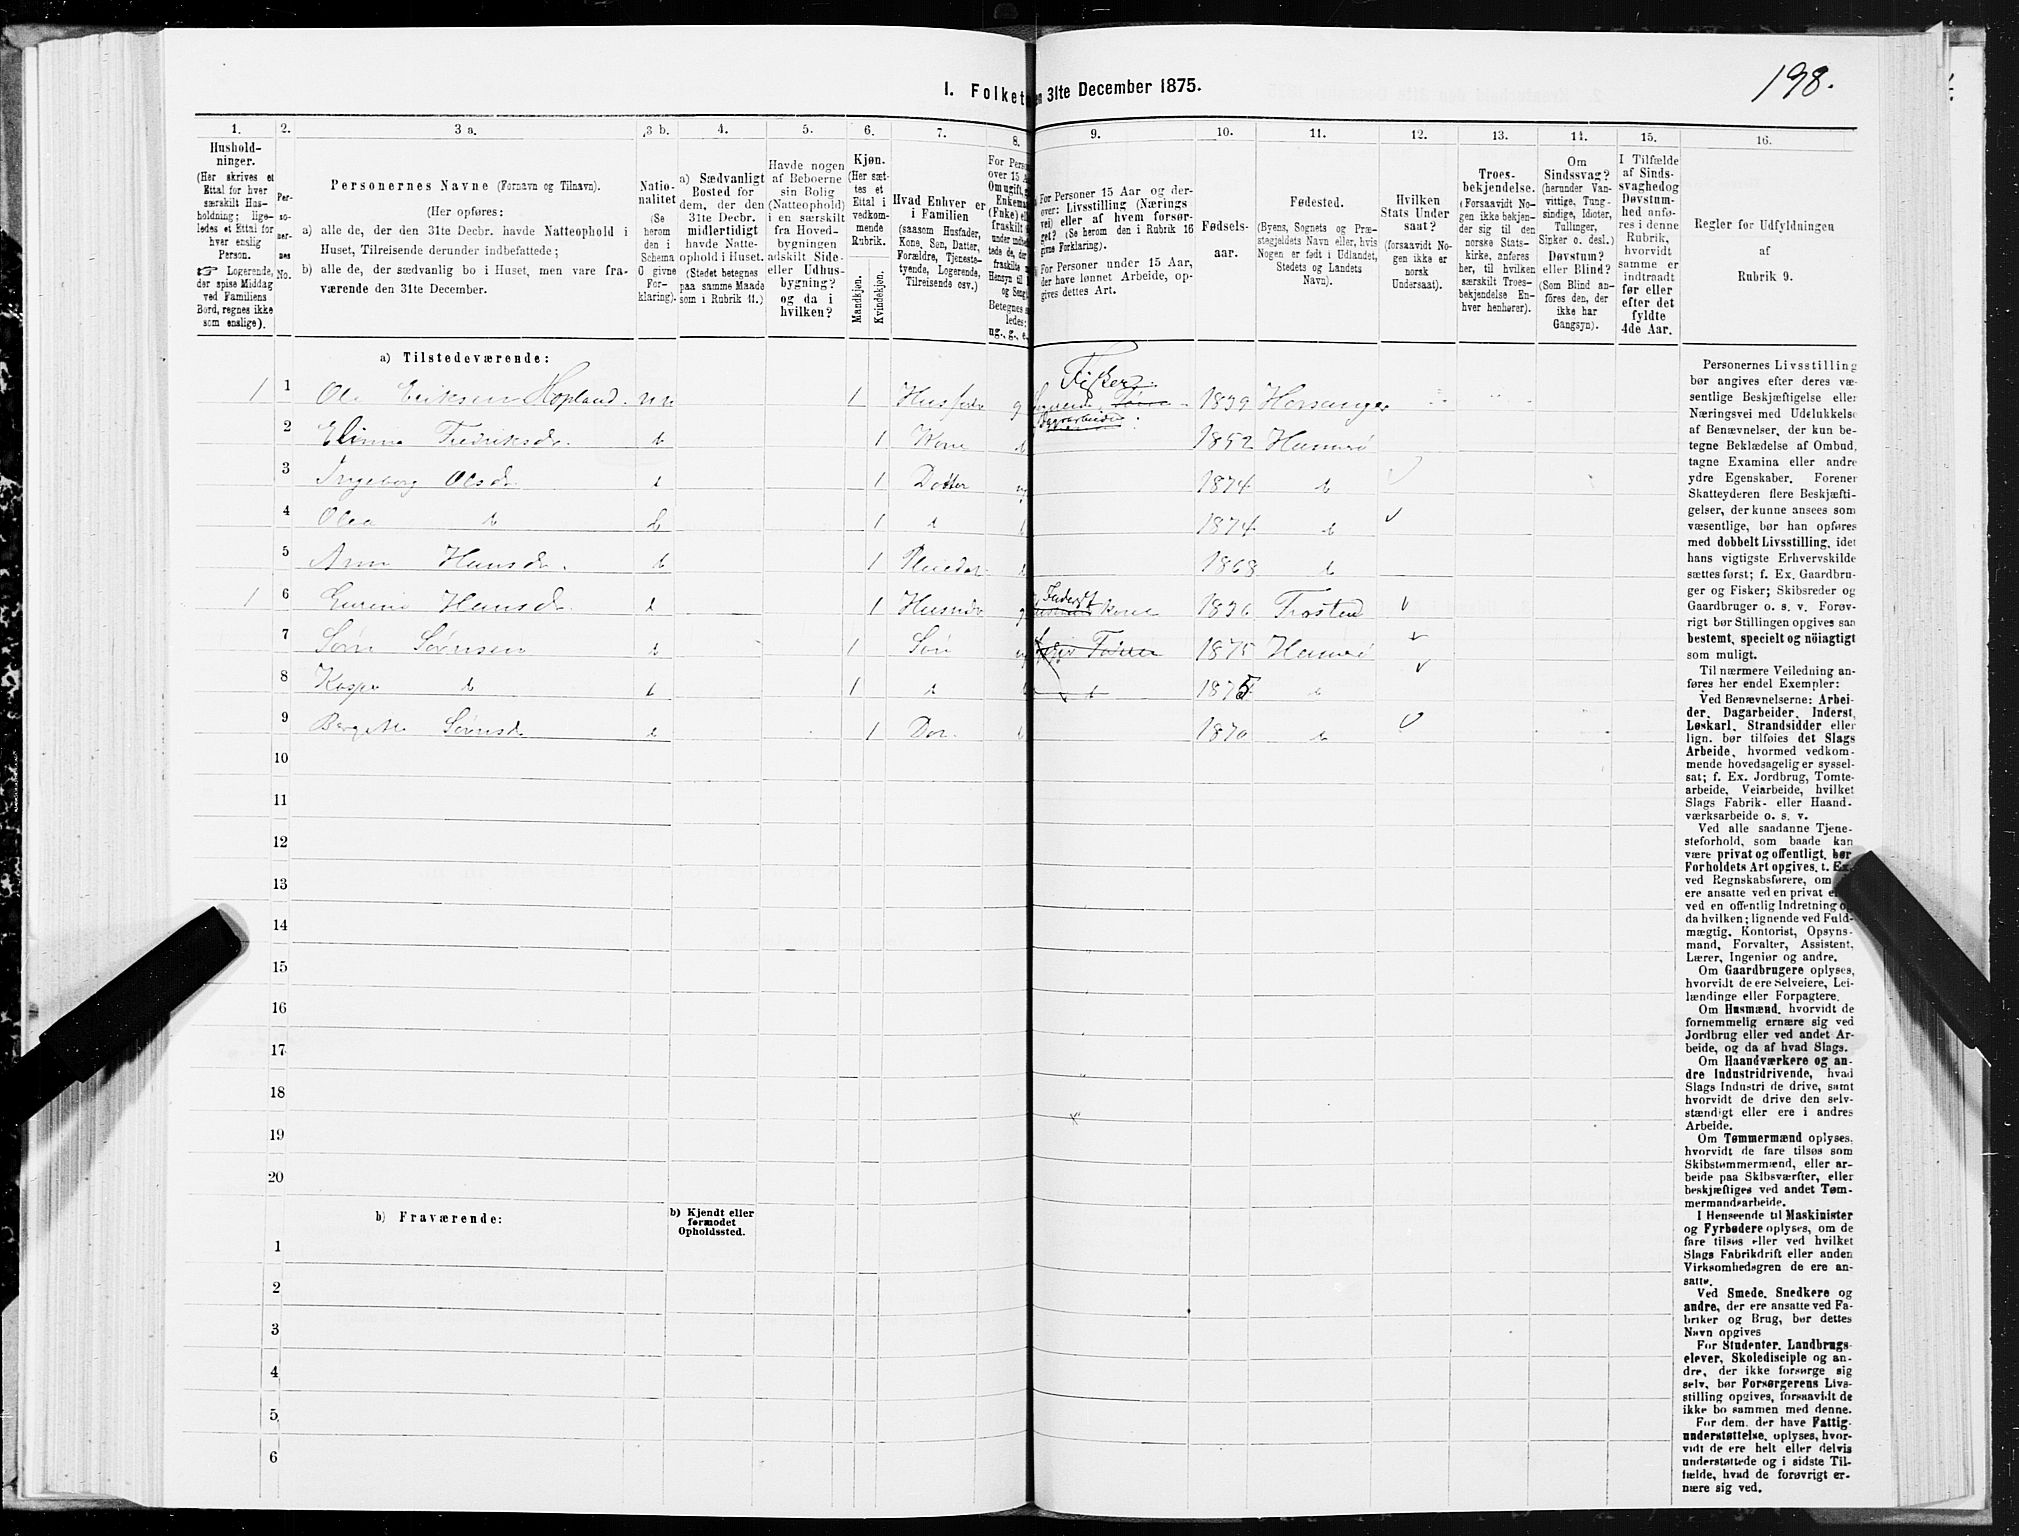 198.
I. Folket en 31te December 1875.
1. 2. 3 a. 3 b. 4. 5. 6. 7. 8. 9. 10. 11. 12. 13. 14. 15. 16.
Hushold-
ninger.
(Her skrives et
Ettal for hver
særskilt Hus-
holdning; lige-
ledes et Ettal for
hver enslig
Person.
☞ Logerende,
der spise Middag
ved Familiens
Bord, regnes ikke
som enslige).
Per-
so-
ner-
nes
No.
Personernes Navne (Fornavn og Tilnavn).
(Her opføres:
a) alle de, der den 31te Decbr. havde Natteophold i
Huset, Tilreisende derunder indbefattede;
b) alle de, der sædvanlig bo i Huset, men vare fra-
værende den 31te December.
Natio-
nalitet
(Se
herom
den i
Schema
O givne
For-
klaring).
a) Sædvanligt
Bosted for
dem, der den
31te Decbr.
midlertidigt
havde Natte-
ophold i Huset.
(Stedet betegnes
paa samme Maade
som i Rubrik 11.)
Havde nogen
af Beboerne
sin Bolig
(Natteophold)
i en særskilt
fra Hoved-
bygningen
adskilt Side-
eller Udhus-
bygning?
og da i
hvilken?
Kjøn.
(Her sæt-
tes et
Ettal i
vedkom-
mende
Rubrik.
Mandkjøn.
Kvindekjøn.
Hvad Enhver er
i Familien
(saasom Husfader,
Kone, Søn, Datter,
Forældre, Tjeneste-
tyende, Logerende,
Tilreisende osv.)
For Perso
over 15 A
Om ugift,
Enkema
(Enke) el
fraskilt
under indbe
tede de, de
fraskilte
Hensyn til
og Seng
Betegnes
ledes:
ug., g., e.,
For Personer 15 Aar og der-
over: Livsstilling (Nærings
vei) eller af hvem forsør-
get? (Se herom den i Rubrik 16
givne Forklaring).
For Personer under 15 Aar,
der have lønnet Arbeide, op-
gives dettes Art.
Fødsels-
aar.
Fødested.
(Byens, Sognets og Præ-
stegjeldets Navn eller, hvis
Nogen er født i Udlandet,
Stedets og Landets
Navn).
Hvilken
Stats Under
saat?
(forsaavidt No-
gen ikke er
norsk
Undersaat).
Troes-
bekjendelse.
(Forsaavidt No-
gen ikke bekjen-
der sig til den
norske Stats-
kirke, anføres
her, til hvilken
særskilt Troes-
bekjendelse En-
hver henhører).
Om
Sindssvag?
(herunder Van-
vittige, Tung-
sindige, Idioter,
Tullinger,
Sinker o. desl.)
Døvstum?
eller Blind?
(Som Blind an-
føres den, der
ikke har
Gangsyn).
I Tilfælde
af Sinds-
svaghedog
Døvstum-
hed anfø-
res i denne
Rubrik,
hvorvidt
samme er
indtraadt
før eller
efter det
fyldte
4de Aar.
Regler for Udfyldningen
af
Rubrik 9.
a) Tilstedeværende:
Fisker
1 1 Ole Eriksen Hopland. nn 1 Husfader g 1839
Dagarbeider
2 Elinne Fredriksdr. d 1 Kone 1852 Hammerø
3 Ingeborg Olsdr d 1 Datter ug 1874 d
4 Olea d d 1 d 1874 d
5 Ann Hansdr. d 1 Pleiedat. d 1868 d
1 6 Hansdr d 1 g Kone 1836
7 Sørn Sørnsen d 1 Søn ug 1875 Hammerø
8 d d 1 d d 1875 d
9 Sørnsdr d 1 Dat. 1870 d
10
11
12
13
14
15
16
17
18
19
20
b) Fraværende:
b) Kjendt eller
formodet
Opholdssted.
1
2
3
4
5
6
Personernes Livsstilling
bør angives efter deres væ-
sentlige Beskjæftigelse eller
Næringsvei med Udelukkelse
af Benævnelser, der kun be-
tegne Beklædelse af Ombud,
tagne Examina eller andre
ydre Egenskaber. Forener
Skatteyderen flere Beskjæfti-
gelser, der kunne ansees som
væsentlige, bør han opføres
med dobbelt Livsstilling, idet
hans vigtigste Erhvervskilde
sættes først; f. Ex. Gaardbru-
ger og Fisker; Skibsreder og
Gaardbruger o. s. v. Forøv-
rigt bør Stillingen opgives saa
bestemt, specielt og nöiagtigt
som muligt.
Til nærmere Veiledning an-
føres her endel Exempler:
Ved Benævnelserne: Arbei-
der, Dagarbeider, Inderst,
Løskarl, Strandsidder eller
lign. bør tilføies det Slags
Arbeide, hvormed vedkom-
mende hovedsagelig er syssel-
sat; f. Ex. Jordbrug, Tomte-
arbeide, Veiarbeide, hvilket
Slags Fabrik- eller Haand-
værksarbeide o. s. v.
Ved alle saadanne Tjene-
steforhold, som baade kan
være privat og offentligt, bør
Forholdets Art opgives, t. Ex.
ved Regnskabsførere, om
ere ansatte ved en privat
ved en offentlig Indretning
da hvilken; lignende ved Fuld-
mægtig, Kontorist, Opsyns-
mand, Forvalter, Assistent,
Lærer, Ingeniør og andre.
Om Gaardbrugere oplyses,
hvorvidt de ere Selveiere, Lei-
lændinge eller Forpagtere.
Om Husmænd, hvorvidt de
fornemmelig ernære sig ved
Jordbrug eller ved andet Ar-
beide, og da af hvad Slags.
Om Haandværkere og an-
dre Industridrivende, hvad
Slags Industri de drive, samt
hvorvidt de drive den selv-
stændigt eller ere i andres
Arbeide.
Om Tømmermænd oplyses,
hvorvidt de fare tilsøs som
Skibstømmermænd, eller ar-
beide paa Skibsværfter, eller
beskjæftiges ved andet Tøm-
mermandsarbeide.
I Henseende til Maskinister
og Fyrbødere oplyses, om de
fare tilsøs eller ved hvilket
Slags Fabrikdrift eller anden
Virksomhedsgren de ere an-
satte.
Ved Smede, Snedkere og
andre, der ere ansatte ved Fa-
briker og Brug, bør dettes
Navn opgives
For Studenter, Landbrugs-
elever, Skoledisciple og an-
dre, der ikke forsørge sig
selv, bør Forsørgerens Livs-
stilling opgives, forsaavidt de
ikke bo sammen med denne.
For dem, der have Fattig-
understøttelse, oplyses, hvor-
vidt de ere helt eller delvis
understøttede og i sidste Til-
fælde, hvad de forøvrigt er-
nære sig ved.